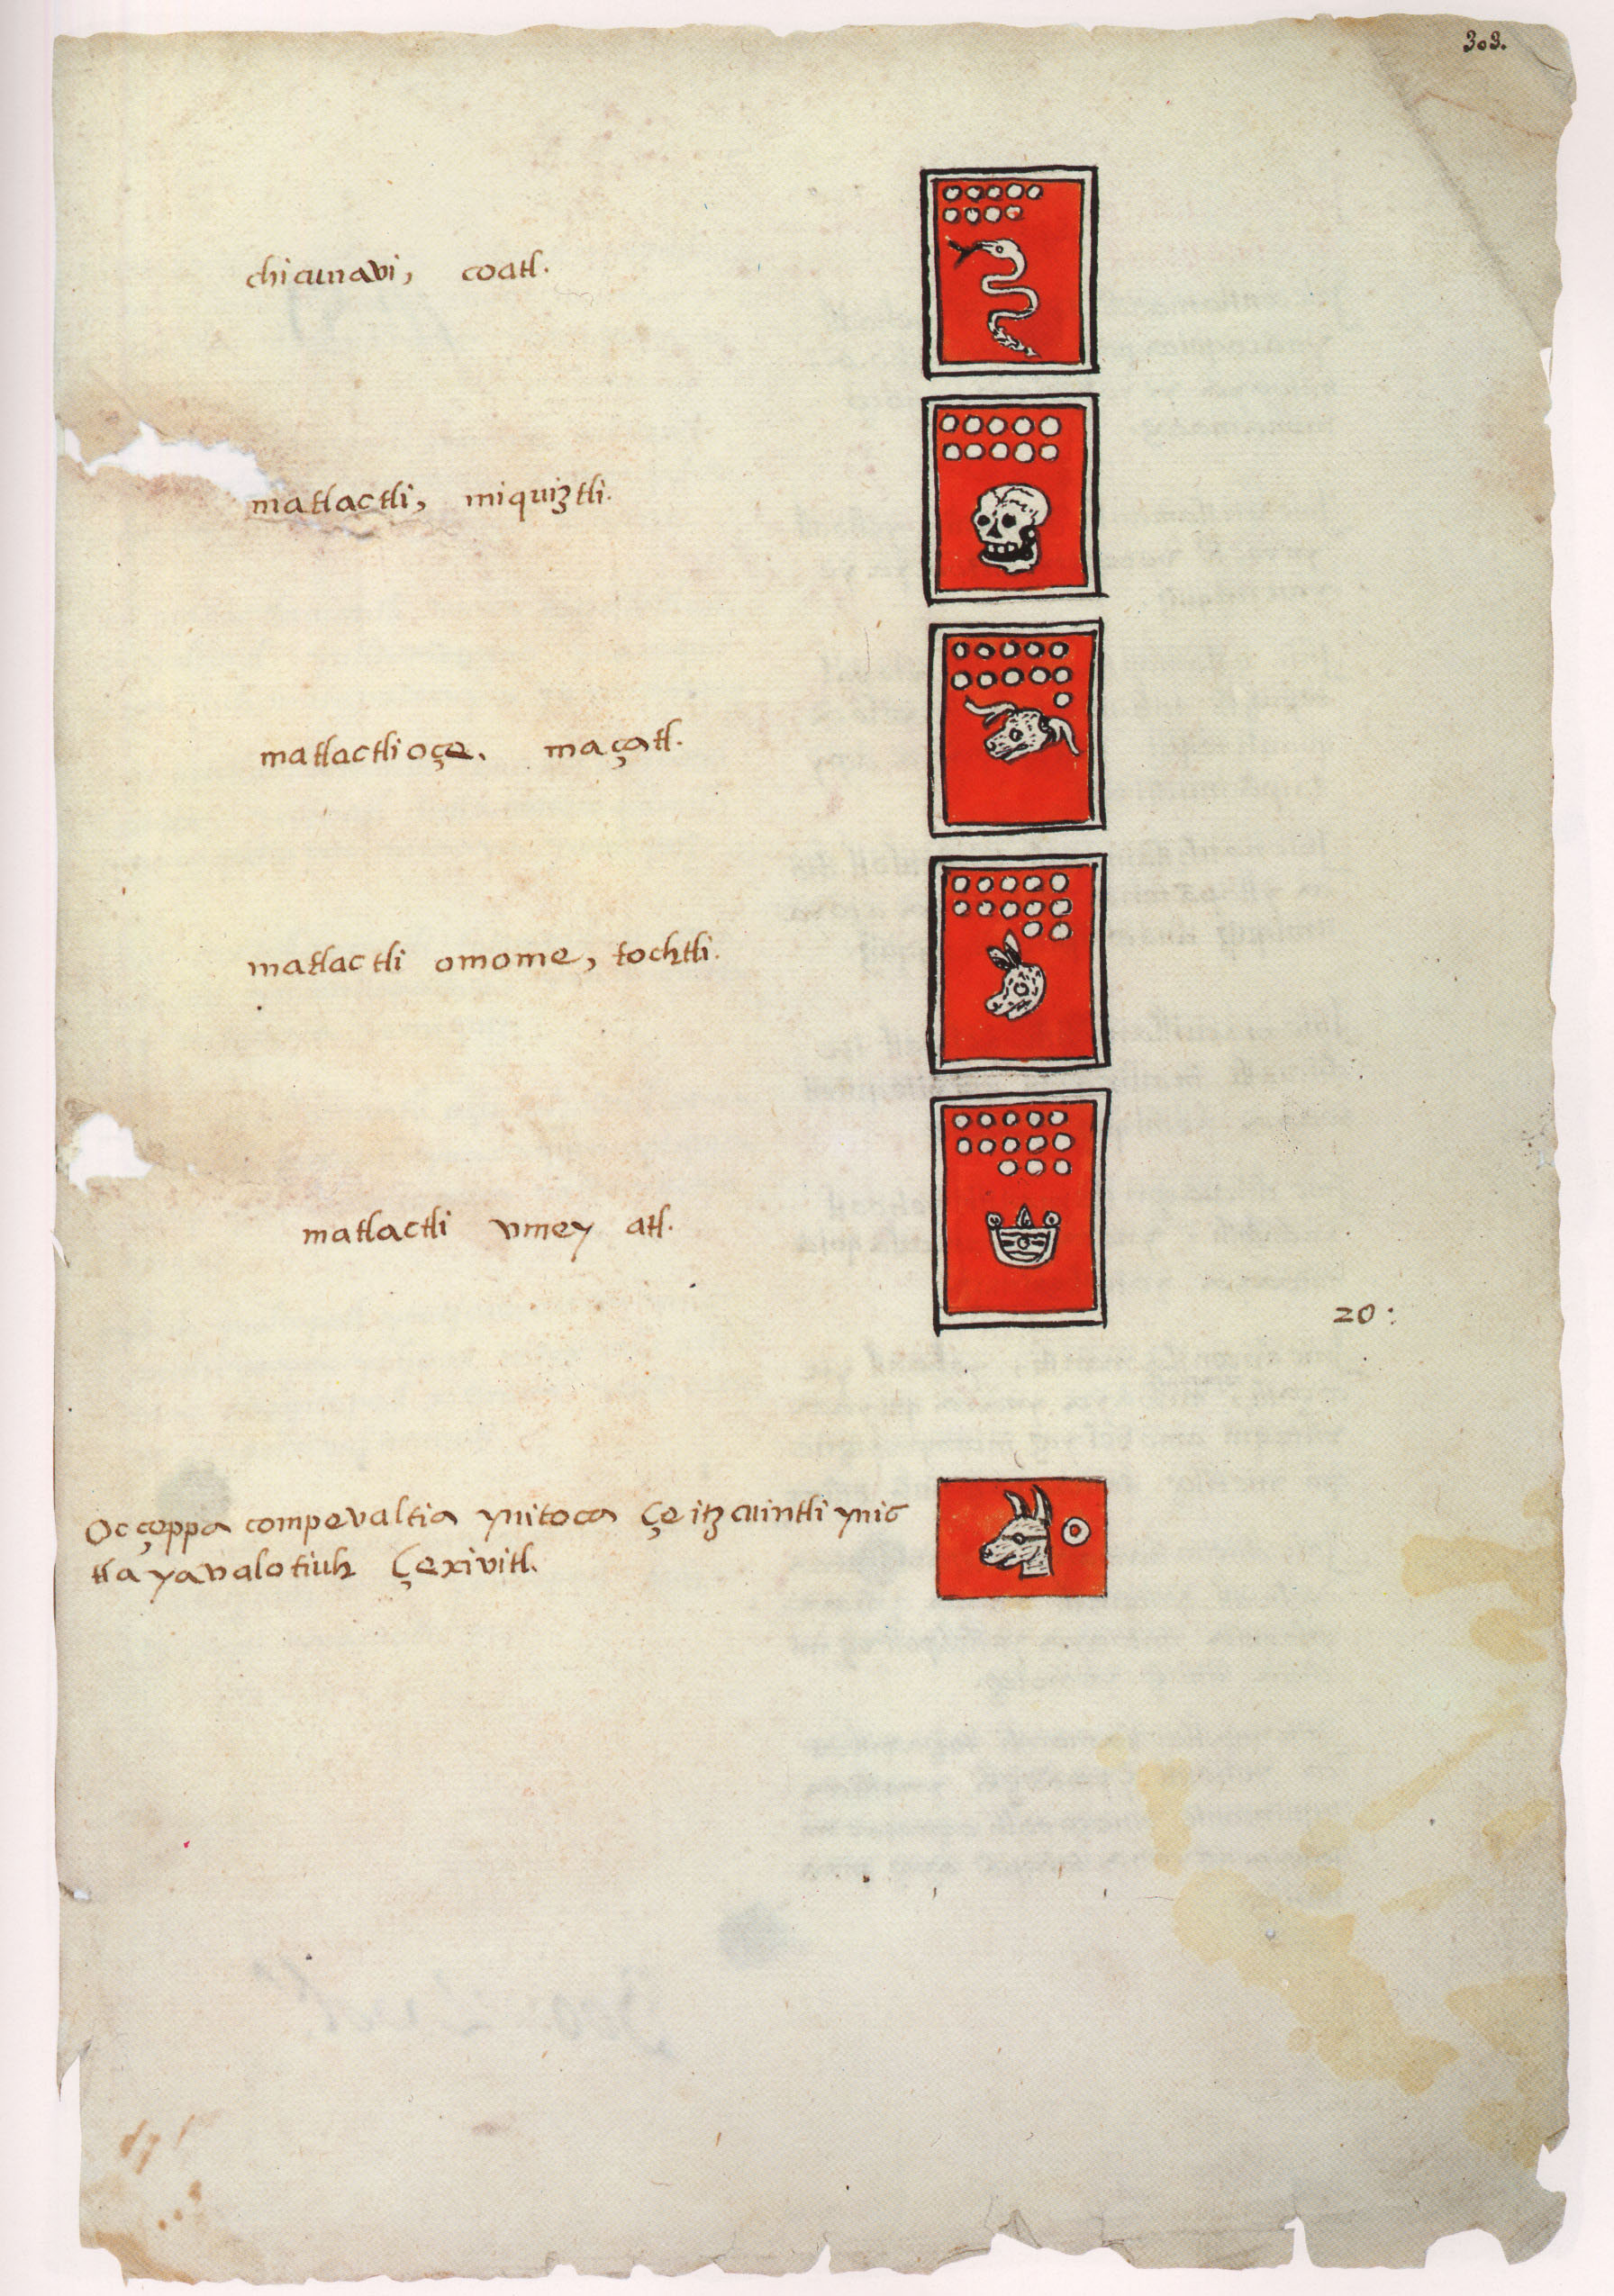 303.
chicunavi, coatl.
matlactli, miquiztli.
matlactlioçe. maçatl.
matlactli omome, tochtli.
matlactli vmey atl.
20:
Occeppa compevaltia ynitoca çe itzcuintli ynic
tlayavalotiuh çexivitl.